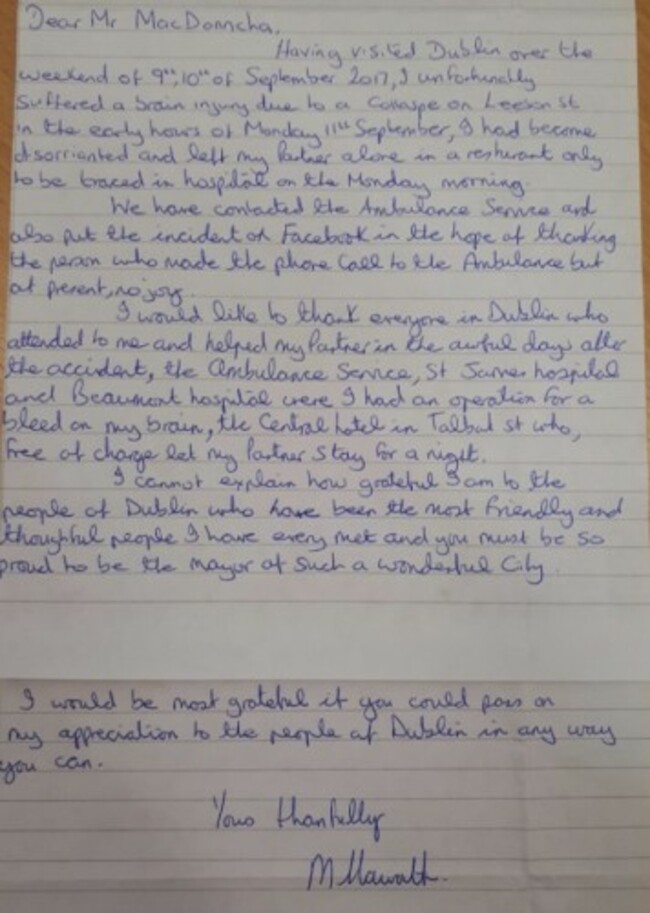 Dear Mr MacDonncha.
Having visited Dublin over the
weekend of 9th, 10th of September 2017, I unfortunatly
suffered a brain injury due to a Collaspe on Leeson st
in the early hours of Monday 11th September, I had become
disorrianted and left my Partner alone in a resturant only
to be traced in hospital on the Monday morning.
We have contacted the Ambulance Service and
also put the incident on Facebook in the hope of thanking
the person who made the phone call to the Ambulance but
at present, no joy.
I would like to thank everyone in Dublin who
attended to me and helped my Partner in the awful days after
the accident, the Ambulance Service, St James hospital
and Beaumont hospital were I had an operation for a
bleed on my brain, the Central hotel in Talbut st who,
free of charge let my Partner stay for a night.
I cannot explain how grateful I am to the
people of Dublin who have been the most friendly and
thoughtful people I have every met and you must be so
proud to be the mayor of such a wonderful City.
I would be most grateful if you could pass on
my appreciation to the people of Dublin in any way
you can.
Yours thankfully
M